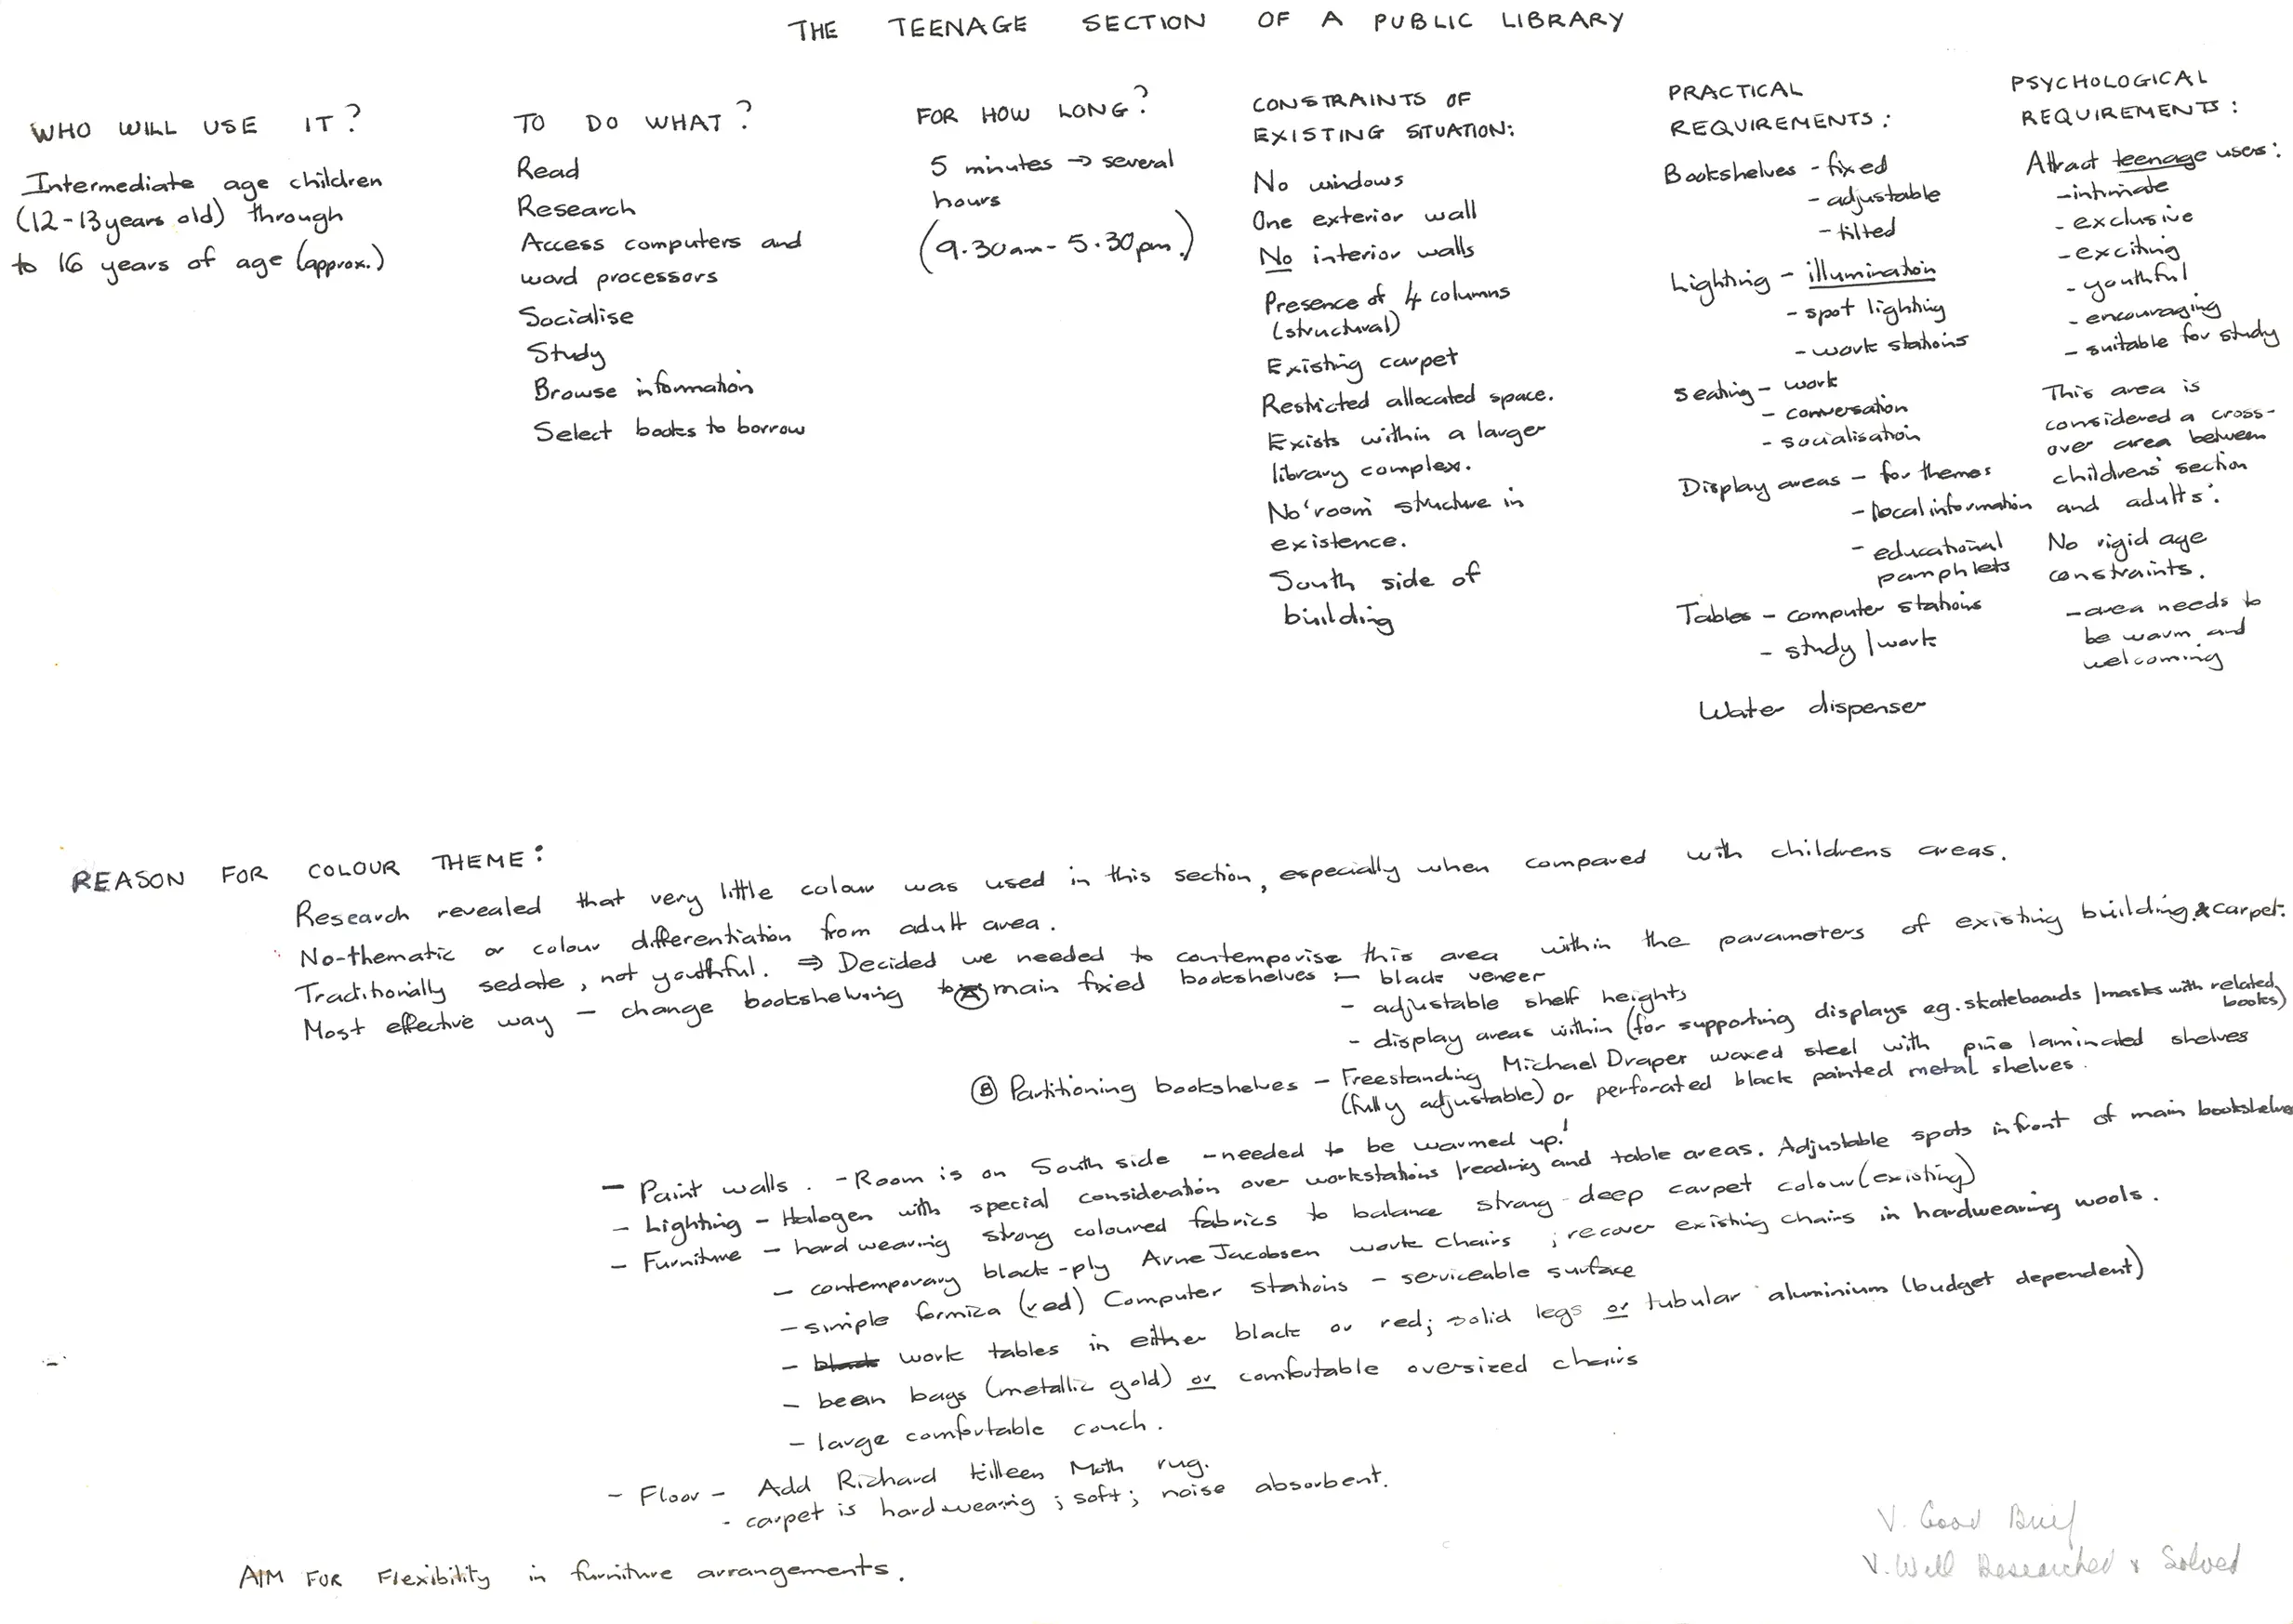 THE TEENAGE SECTION OF A PUBLIC LIBRARY
WHO WILL USE IT?
Intermediate age children
(12-13 years old) through
to 16 years of age (approx.)
TO DO WHAT?
Read
Research
Access computers and
word processors
Socialise
Study
Browse information
Select books to borrow
FOR HOW LONG?
5 minutes → several
hours
(9.30am - 5.30pm.)
CONSTRAINTS OF
EXISTING SITUATION:
No windows
One exterior wall
No interior walls
Presence of 4 columns
(structural)
Existing carpet
Restricted allocated space.
Exists within a larger
library complex.
No 'room' structure in
existence.
South side of
building
PRACTICAL
REQUIREMENTS:
Bookshelves - fixed
- adjustable
- tilted
Lighting - illumination
- spot lighting
- work stations
Seating - work
- conversation
- socialisation
Display areas - for themes
- local information
- educational
pamphlets
Tables - computer stations
- study / work
Water dispenser
PSYCHOLOGICAL
REQUIREMENTS:
Attract teenage users:
- intimate
- exclusive
- exciting
- youthful
- encouraging
- suitable for study
This area is
considered a cross-
over area between
childrens' section
and adults'.
No rigid age
constraints.
- area needs to
be warm and
welcoming
REASON FOR COLOUR THEME:
Research revealed that very little colour was used in this section, especially when compared with childrens areas.
No-thematic or colour differentiation from adult area.
Traditionally sedate, not youthful. ⇒ Decided we needed to contemporise this area within the parameters of existing building & carpet.
Most effective way - change bookshelving to Ⓐ main fixed bookshelves :- black veneer
- adjustable shelf heights
- display areas within (for supporting displays eg. skateboards / masks with related books)
Ⓑ Partitioning bookshelves - Freestanding Michael Draper waxed steel with pine laminated shelves
(fully adjustable) or perforated black painted metal shelves.
- Paint walls. - Room is on South side - needed to be warmed up!
- Lighting - Halogen with special consideration over workstations / reading and table areas. Adjustable spots infront of main bookshelves
- Furniture - hard wearing strong coloured fabrics to balance strong - deep carpet colour (existing)
- contemporary black-ply Arne Jacobsen work chairs ; recover existing chairs in hardwearing wools.
- simple formica (red) Computer stations - serviceable surface
- black work tables in either black or red; solid legs or tubular aluminium (budget dependent)
- bean bags (metallic gold) or comfortable oversized chairs
- large comfortable couch.
- Floor - Add Richard Killeen Moth rug.
- carpet is hardwearing ; soft ; noise absorbent.
AIM FOR Flexibility in furniture arrangements.
V. Good Brief
V. Well Researched & Solved